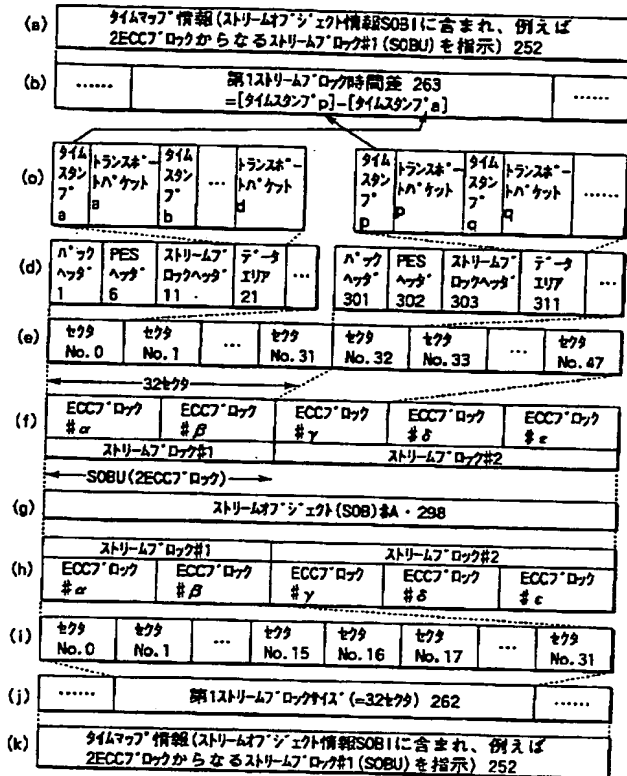 (a) タイムマップ情報(ストリームオブジェクト情報SOBIに含まれ、例えば
2ECCブロックからなるストリームブロック#1(SOBU)を指示) 252
(b) …… 第1ストリームブロック時間差 263 ……
=[タイムスタンプp]-[タイムスタンプa]
(c) タイムスタンプa トランスポートパケットa タイムスタンプb … トランスポートパケットd タイムスタンプp トランスポートパケットp タイムスタンプq トランスポートパケットq ……
(d) パックヘッダ1 PESヘッダ6 ストリームブロックヘッダ11 データエリア21 … パックヘッダ301 PESヘッダ302 ストリームブロックヘッダ303 データエリア311 …
(e) セクタNo.0 セクタNo.1 … セクタNo.31 セクタNo.32 セクタNo.33 … セクタNo.47
32セクタ
(f) ECCブロック#α ECCブロック#β ECCブロック#γ ECCブロック#δ ECCブロック#ε
ストリームブロック#1 ストリームブロック#2
SOBU(2ECCブロック)
(g) ストリームオブジェクト(SOB)#A・298
ストリームブロック#1 ストリームブロック#2
(h) ECCブロック#α ECCブロック#β ECCブロック#γ ECCブロック#δ ECCブロック#ε
(i) セクタNo.0 セクタNo.1 … セクタNo.15 セクタNo.16 セクタNo.17 … セクタNo.31
(j) …… 第1ストリームブロックサイズ(=32セクタ) 262 ……
(k) タイムマップ情報(ストリームオブジェクト情報SOBIに含まれ、例えば
2ECCブロックからなるストリームブロック#1(SOBU)を指示) 252